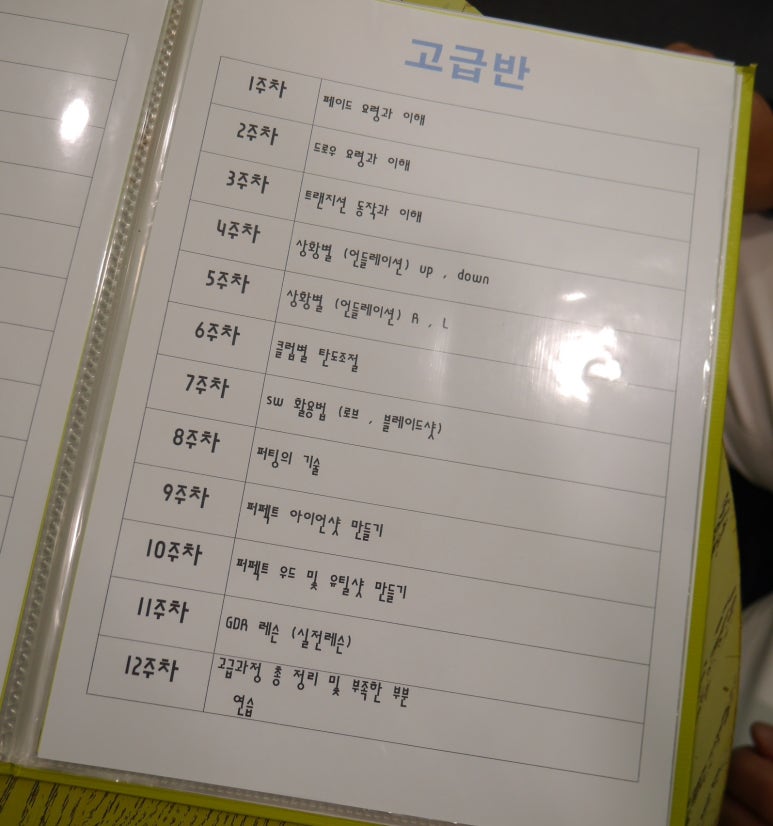 고급반
1주차 페이드 요령과 이해
2주차 드로우 요령과 이해
3주차 트랜지션 동작과 이해
4주차 상황별 (언듈레이션) up , down
5주차 상황별 (언듈레이션) R , L
6주차 클럽별 탄도조절
7주차 SW 활용법 (로브 , 블레이드샷)
8주차 퍼팅의 기술
9주차 퍼펙트 아이언샷 만들기
10주차 퍼펙트 우드 및 유틸샷 만들기
11주차 GDR 레슨 (실전레슨)
12주차 고급과정 총 정리 및 부족한 부분
연습